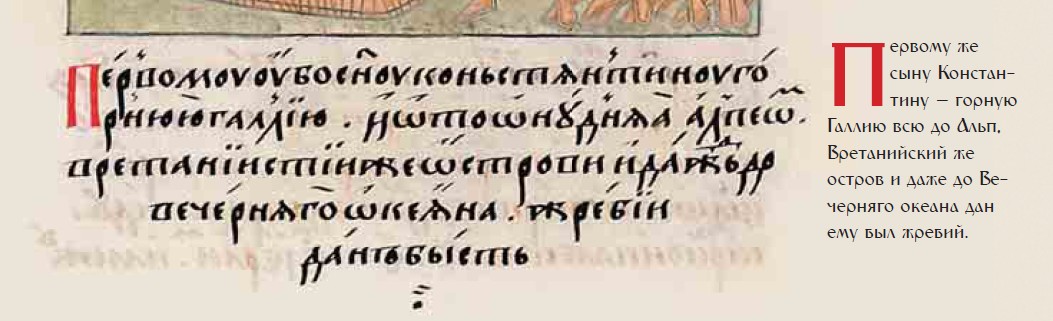 Пе́рвомоу оу҆́бо сн҃оу коньстѧнти́ноу го́
рнюю галлі́ю . и҆ ѡ҆тоѡнꙋ́днѧѧ а҆́лпеѡ҃.
вретані́исті́и же ѡ҆строви и҆ да́жь до
вече́рнѧго ѡ҆кеа҆́на . жре́бїи
да́нъ бы́сть
Первому же
сыну Констан-
тину – горную
Галлию всю до Альп,
Вретанийский же
остров и даже до Ве-
черняго океана дан
ему был жребий.